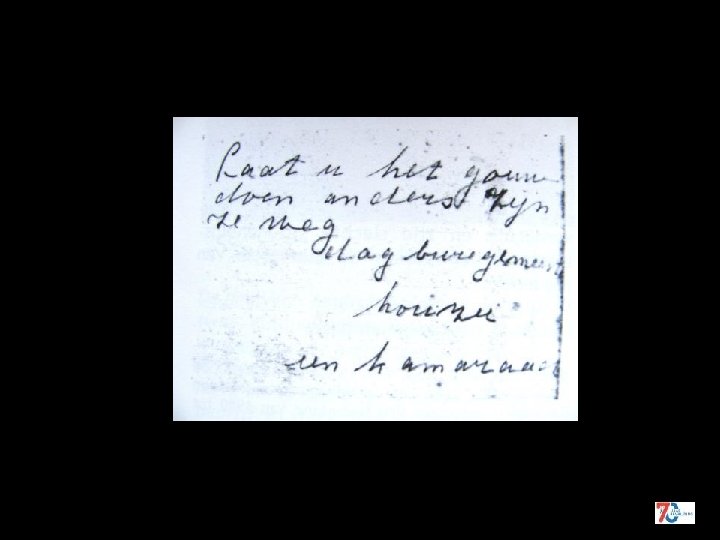 Laat u het gauw
doen anders zijn
ze weg
dag buregemeest
houzee
een kamaraad
70